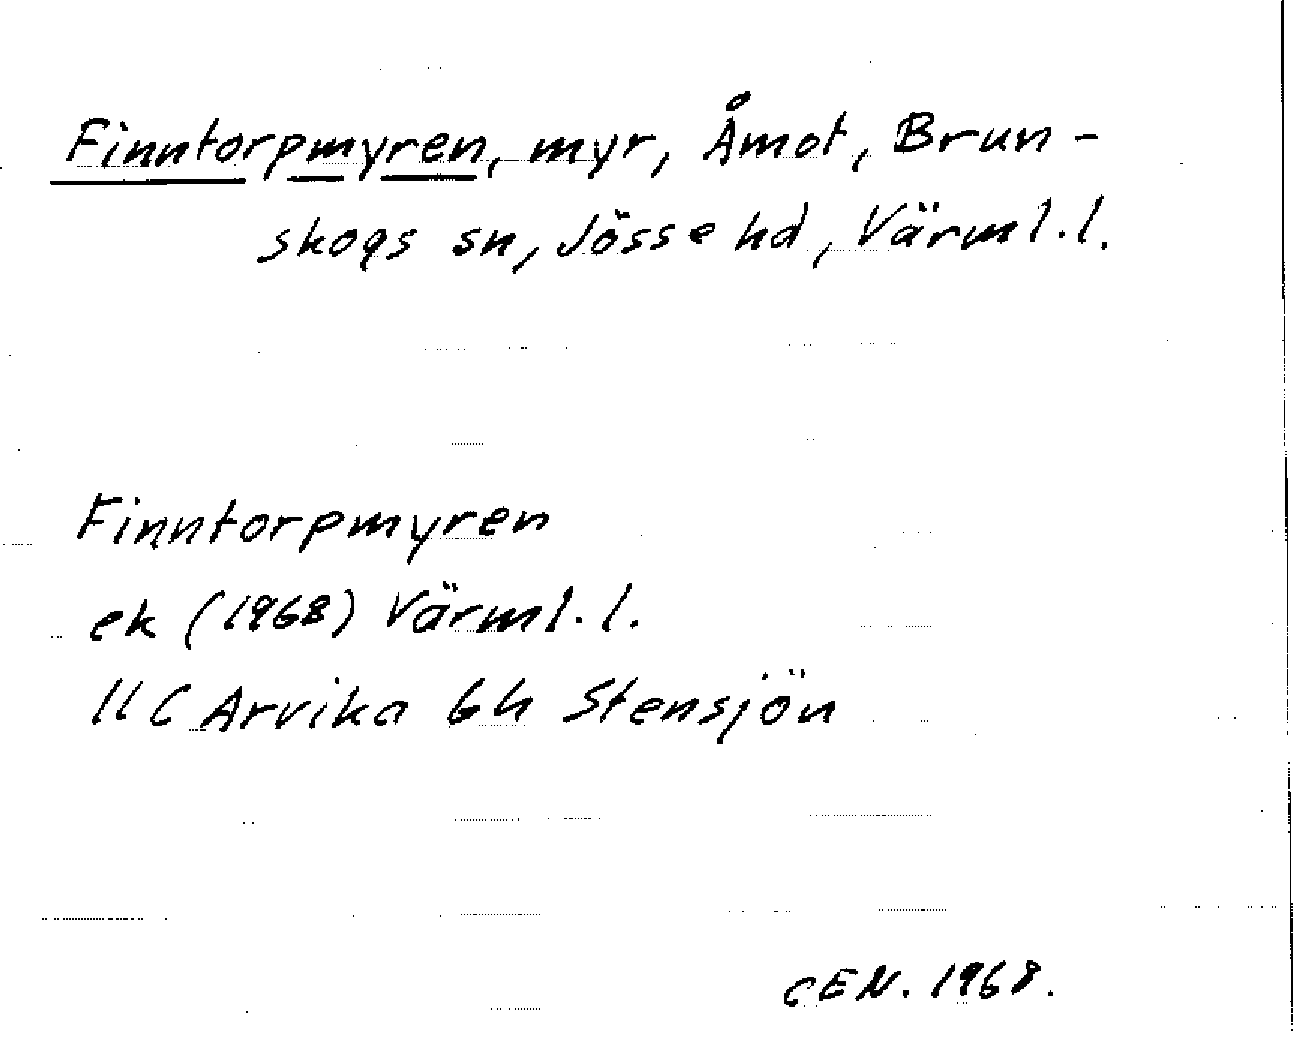 Finntorpmyren, myr, Åmot, Brun-
skogs sn, Jösse hd, Värml.l.
Finntorpmyren
ek (1968) Värml.l.
11C Arvika 6h Stensjön
CEN. 1968.